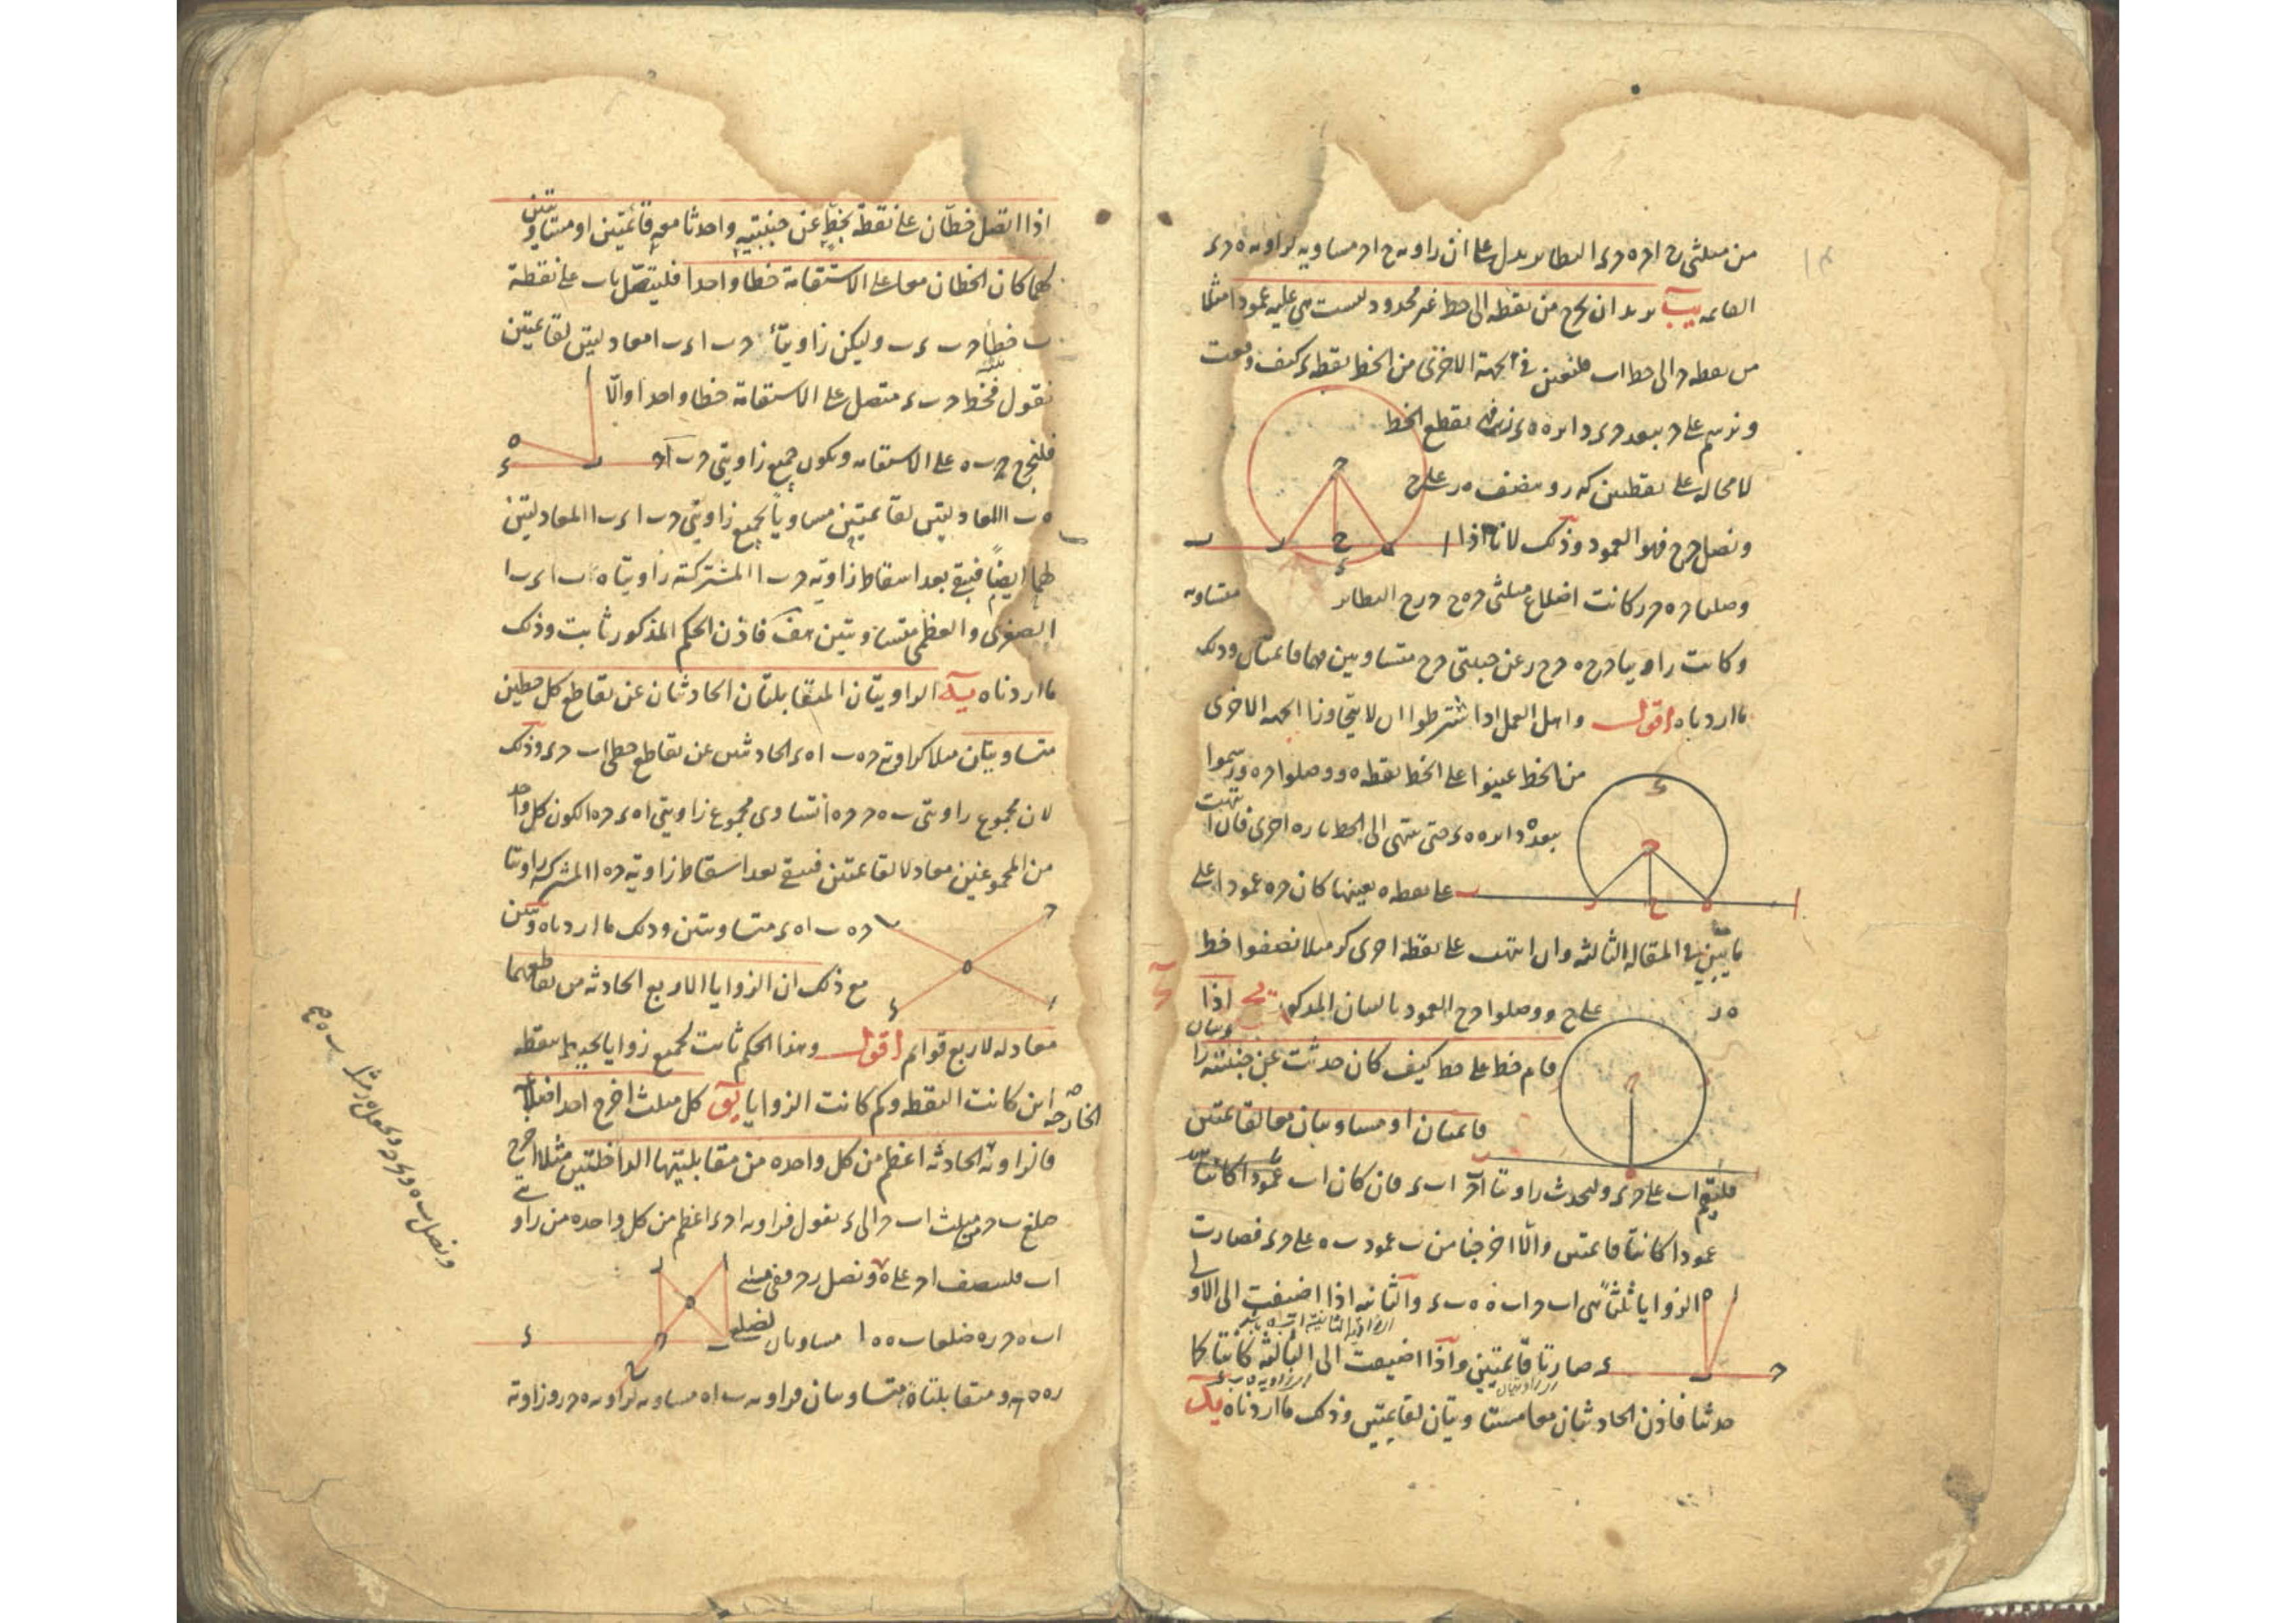 من مثلثى ح ا ح ه ح ء النظاير يدل على ان زاوية ح ا ح مساوية لزاوية ه ح ء
القائمة يب نريد ان نخرج من نقطة الى خط غير محدود ليست هى عليه عمودا مثلا
من نقطة ح الى خط ا ب فلنعين فى الجهة الاخرى من الخط نقطة ء كيف وقعت
ونرسم على ح ببعد ح ء دايرة ه ء ر فهى تقطع الخط
لا محالة على نقطتين كه ر وننصف ه ر على ح
ونصل ح ح فهو العمود وذلك لانا اذا
وصلنا ح ه ح ر كانت اضلاع مثلثى ح ه ح ح ر ح النظاير متساوية
وكانت زاويتا ح ح ه ح ح ر عن جنبتى ح ح متساويتين فهما قائمتان وذلك
ما اردناه اقول واهل العمل اذا اشترطوا ان لا يتجاوزا الجهة الاخرى
من الخط عينوا على الخط نقطة ه ووصلوا ح ه ورسموا
ببعده دايرة ه ء حتى تنتهى الى الخط تارة اخرى فان انتهت
على نقطة ه بعينها كان ح ه عمودا على
ما يتبين فى المقالة الثالثة وان انتهت على نقطة اخرى كر مثلا نصفوا خط
ه ر على ح ووصلوا ح ح العمود بالبيان المذكور يح اذا
قام خط على خط كيف كان حدثت عن جنبتيه زاويتان
قائمتان او مساويتان معا لقائمتين
فليقم ا ب على ح ء وليحدث زاويتا ا ب ح ا ب ء فان كان ا ب عمودا كانتا
عمودا كانتا قائمتين والا اخرجنا من ب عمود ب ه على ح ء فصارت
الزوايا ثلثا هى ا ب ح ا ب ه ه ب ء والثانية اذا اضيفت الى الاولى
الزاوية الثانية ا ب ه
صارتا قائمتين واذا اضيفت الى الثالثة كانتا كما
اى زاوية ه ب ء
اى زاويتان
حدثتا فاذن الحادثتان معا مساويتان لقائمتين وذلك ما اردناه يد
اذا اتصل خطان على نقطة بخط عن جنبتيه واحدثا معه قائمتين او متساويتين
لهما كان الخطان معا على الاستقامة خطا واحدا فليتصل با ب على نقطة
ب خطا ح ب ء ب وليكن زاويتا ح ب ا ء ب ا معادلتين لقائمتين
نقول فخط ح ب ء متصل على الاستقامة خطا واحدا والا
فلنخرج ح ب ه على الاستقامة ويكون جميع زاويتى ح ب ا
ه ب ا المعادلتين لقائمتين مساويا لجميع زاويتى ح ب ا ء ب ا المعادلتين
لهما ايضا فيبقى بعد اسقاط زاوية ح ب ا المشتركة زاويتا ه ب ا ء ب ا
الصغرى والعظمى متساويتين هف فاذن الحكم المذكور ثابت وذلك
ما اردناه يه الزاويتان المتقابلتان الحادثتان عن تقاطع كل خطين
متساويتان مثلا كزاويتى ح ه ب ا ه ء الحادثتين عن تقاطع خطى ا ب ح ء وذلك
لان مجموع زاويتى ب ه ح ح ه ا تساوى مجموع زاويتى ا ه ء ح ه ا لكون كل واحد
من المجموعين معادلا لقائمتين فيبقى بعد اسقاط زاوية ح ه ا المشتركة زاويتا
ح ه ب ا ه ء متساويتين وذلك ما اردناه وتبين
مع ذلك ان الزوايا الاربع الحادثة من تقاطعهما
معادلة لاربع قوائم اقول وهذا الحكم ثابت لجميع زوايا يحيط بنقطة
اين كانت النقطة وكم كانت الزوايا يو كل مثلث اخرج احد اضلاعه
الخارجة
فالزاوية الحادثة اعظم من كل واحدة من مقابلتيها الداخلتين مثلا اخرج
ضلع ب ح من مثلث ا ب ح الى ء نقول فزاوية ا ح ء اعظم من كل واحدة من زاويتى
ا ب فلننصف ا ح على ه ونصل ب ه
ا ب ه ح ر ه ضلعا ب ه ه ا مساويان لضلعى
ر ه ه ح ومتقابلتا ه متساويتان فزاوية ب ا ه مساوية لزاوية ه ح ر وزاوية